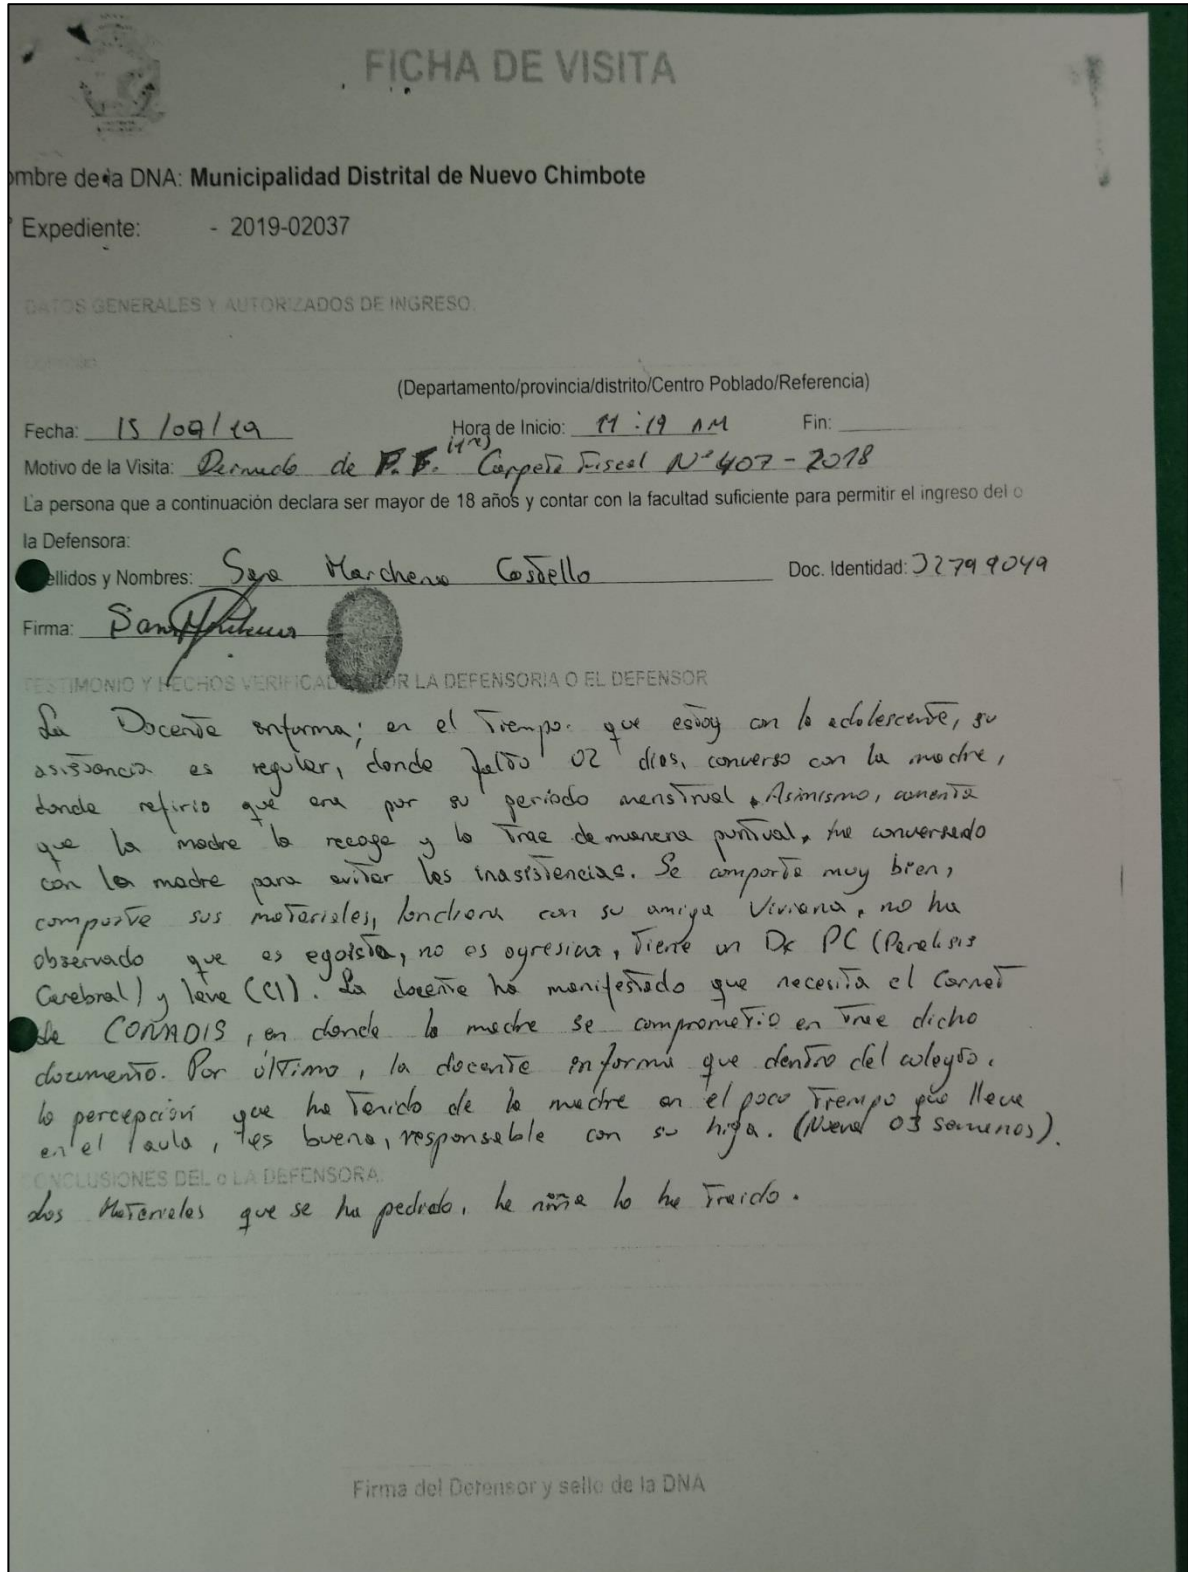 FICHA DE VISITA
ombre de la DNA: Municipalidad Distrital de Nuevo Chimbote
Expediente: - 2019-02037
DATOS GENERALES Y AUTORIZADOS DE INGRESO:
(Departamento/provincia/distrito/Centro Poblado/Referencia)
Fecha: 15/09/19 Hora de Inicio: 11:19 AM Fin:
Motivo de la Visita: de P.F. Carpeta Fiscal N° 407-2018
La persona que a continuación declara ser mayor de 18 años y contar con la facultad suficiente para permitir el ingreso del o
la Defensora:
ellidos y Nombres: Sara Marcheno Costello Doc. Identidad: 32799049
Firma:
TESTIMONIO Y HECHOS VERIFICADOS POR LA DEFENSORIA O EL DEFENSOR
La Docente informa; en el Tiempo. que estoy con la adolescente, su
asistencia es regular, donde falto 02 dias, converso con la madre,
donde refirio que era por su período menstrual. Asimismo, comenta
que la madre la recoge y la Trae de manera puntual, he conversado
con la madre para evitar las inasistencias. Se comporta muy bien,
comparte sus materiales, lonchera con su amiga Viviana, no ha
observado que es egoista, no es agresiva, Tiene un Dx PC (Paralisis
Cerebral) y leve (CI). La docente ha manifestado que necesita el Carnet
de CONADIS, en donde la madre se comprometio en Trae dicho
documento. Por último, la docente informa que dentro del colegio.
la percepción que ha Tenido de la madre en el poco Tiempo que lleva
en el aula, es buena, responsable con su hija. (Nueva 03 semanas).
CONCLUSIONES DEL o LA DEFENSORA:
Los Materiales que se ha pedido, la niña lo ha Traido.
Firma del Defensor y sello de la DNA